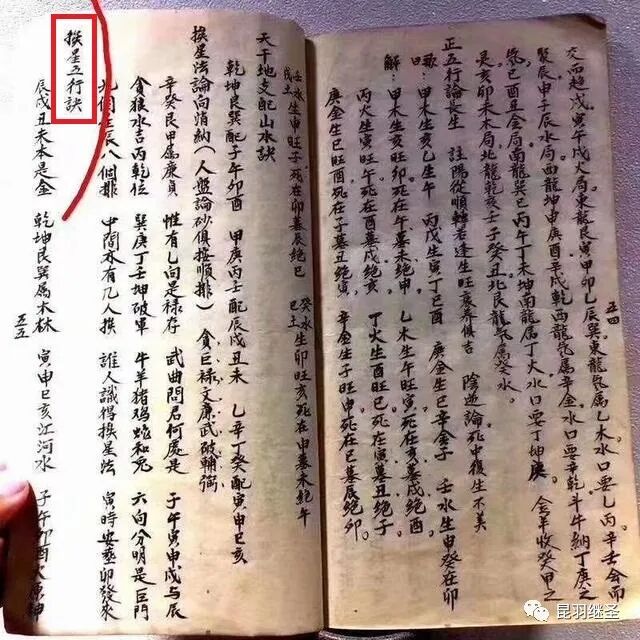 交而趋戌寅午戌火局東龍艮寅甲卯乙辰巽東龍氣属乙木水口要乙丙辛壬会而
聚辰申子辰水局西龍坤申庚酉辛戌乾西龍氣属辛金水口要辛乾斗牛納丁庚之
氣巳酉丑金局南龍巽巳丙午丁未坤南龍属丁火水口要丁坤庚金羊收癸甲之
是亥卯未木局北龍乾亥壬子癸丑北艮龍氣属癸水
正五行論長生 註陽從順轉若逢生旺衰墓俱吉 陰逆論死中復生不美
歌曰 甲木生亥乙生午 丙戊生寅丁己酉 庚金生巳辛金子 壬水生申癸在卯
解 甲木生亥旺卯死在午墓未絶申 乙木生午旺寅死在亥墓戌絶酉
丙火生寅旺午死在酉墓戌絶亥 丁火生酉旺巳死在寅墓丑絶子
庚金生巳旺酉死在子墓丑絶寅 辛金生子旺申死在巳墓辰絶卯
五四
壬水生申旺子死在卯墓辰絶巳 癸水生卯旺亥死在申墓未絶午
戊土 己土
天干地支配山水訣
乾坤艮巽配子午卯酉 甲庚丙壬配辰戌丑未 乙辛丁癸配寅申巳亥
挨星法論向消納（人盤論砂俱按順排） 貪巨禄文廉武破輔弼
辛癸艮甲属廉貞 惟有乙向是禄存 武曲問君何處是 子午寅申戌与辰
貪狼水吉丙乾位 巽庚丁壬坤破軍 牛羊猪鸡蛇和兎 六向分明是巨門
九個星辰八個排 中間水有几人挨 誰人識得挨星法 寅時安葬卯發來
挨星五行訣
辰戌丑未本是金 乾坤艮巽属木林 寅申巳亥江河水 子午卯酉火原神
五五
昆羽继圣